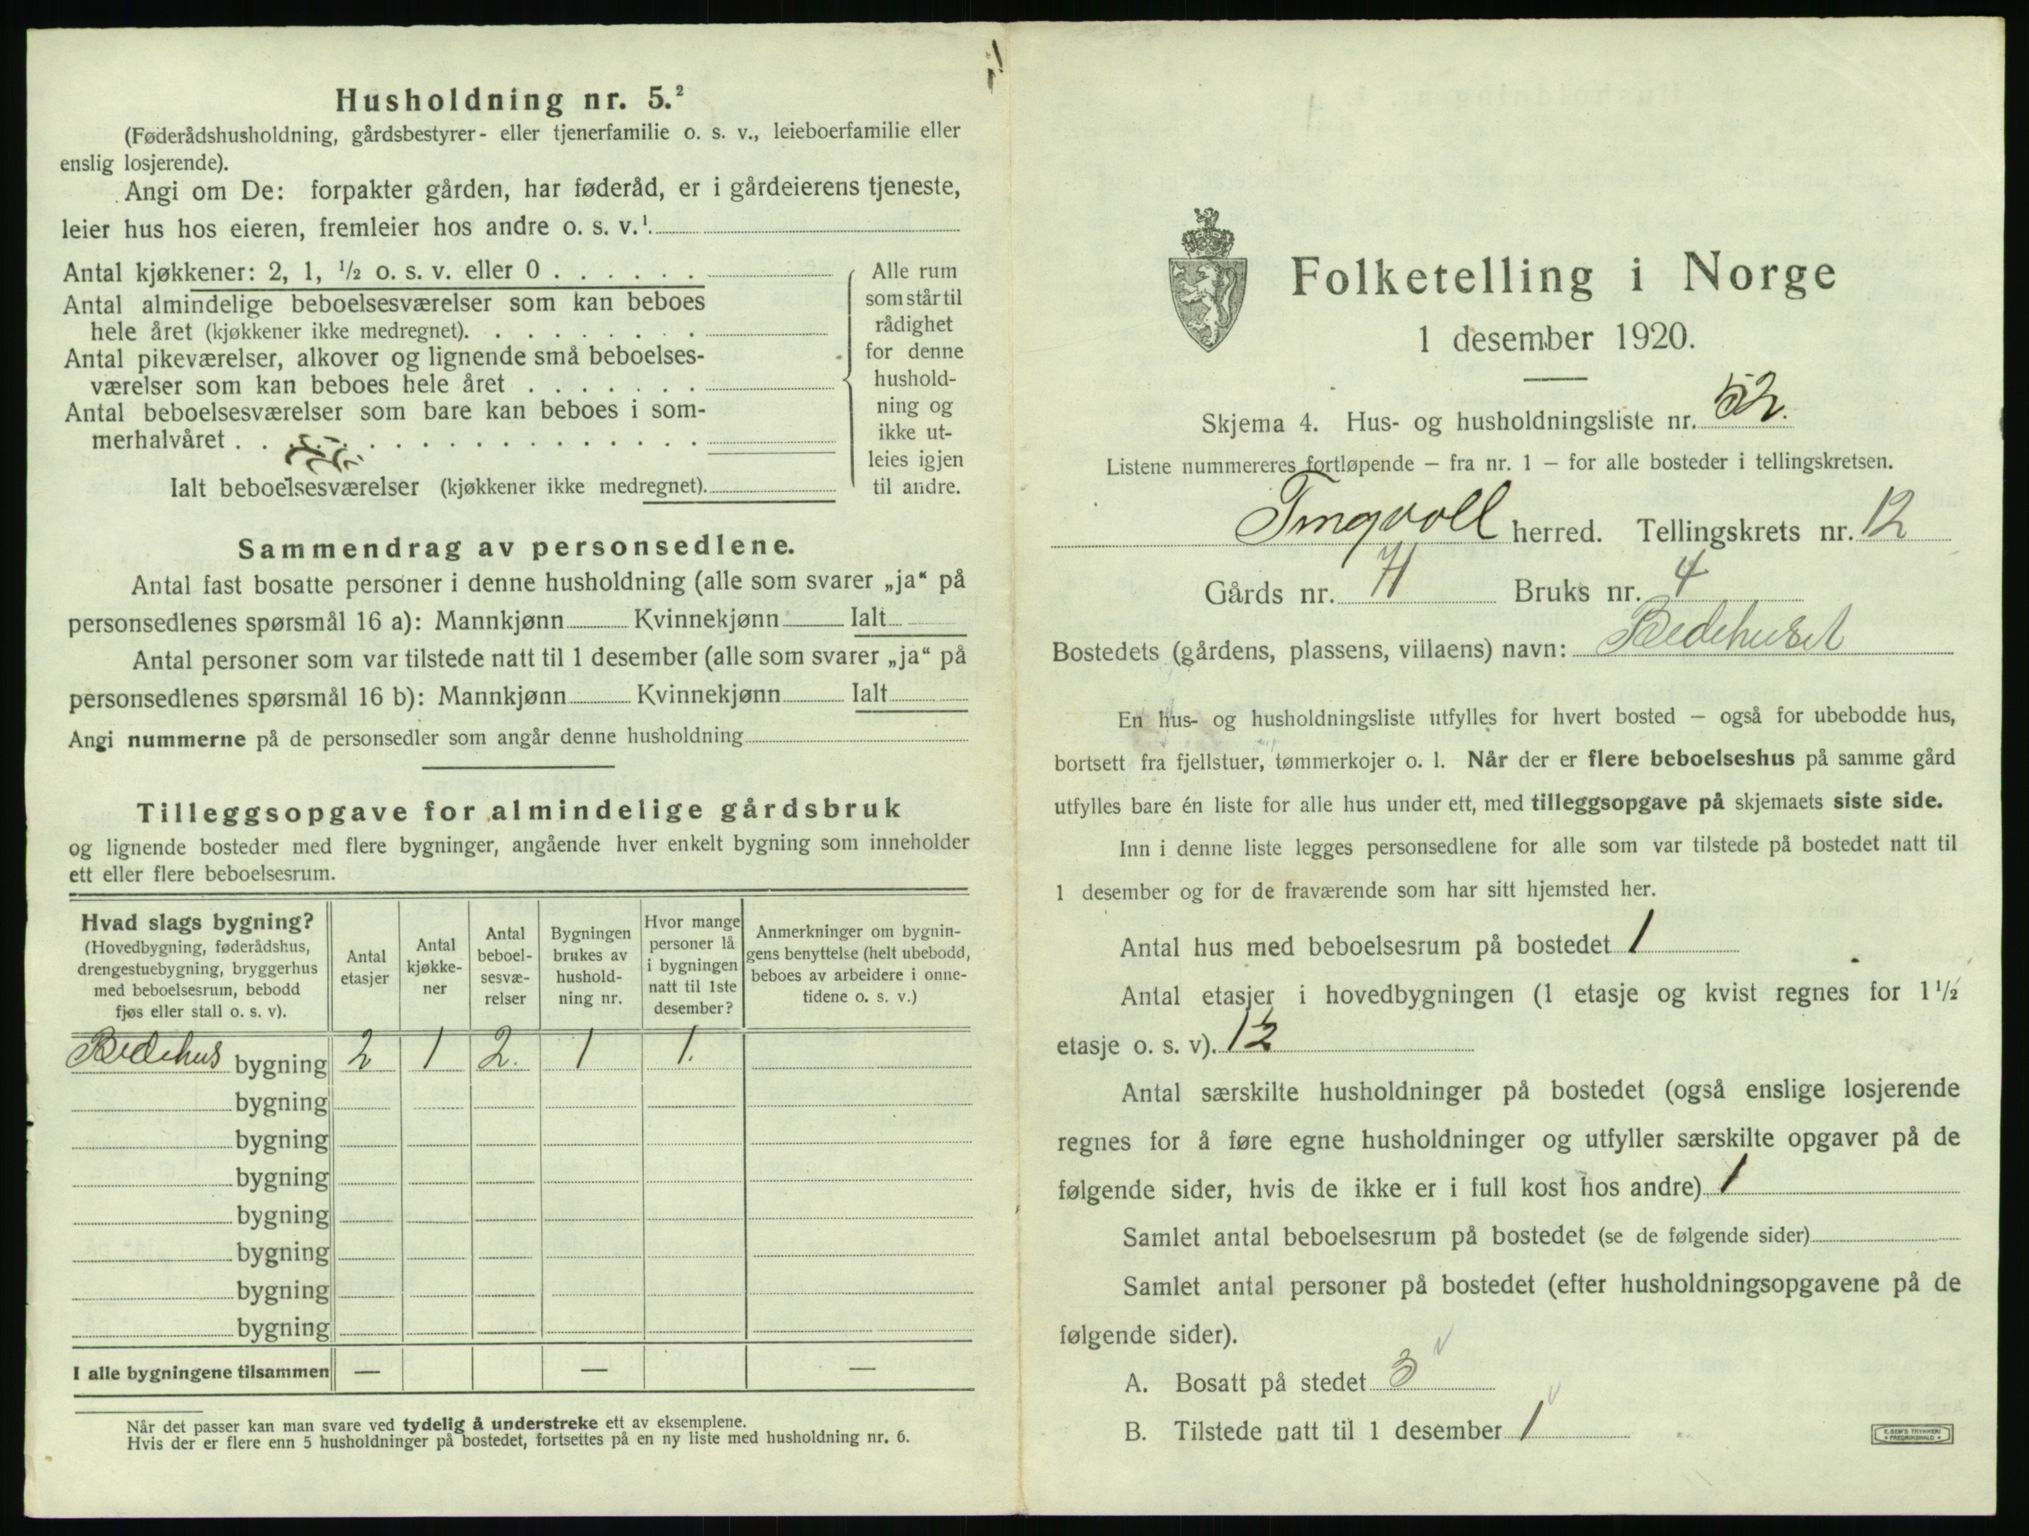 Husholdning nr. 5.²
(Føderådshusholdning, gårdsbestyrer- eller tjenerfamilie o. s. v., leieboerfamilie eller
enslig losjerende).
Angi om De: forpakter gården, har føderåd, er i gårdeierens tjeneste,
leier hus hos eieren, fremleier hos andre o. s. v.¹
Antal kjøkkener: 2, 1, ½ o. s. v. eller 0
Antal almindelige beboelsesværelser som kan beboes
hele året (kjøkkener ikke medregnet).
Antal pikeværelser, alkover og lignende små beboelses-
værelser som kan beboes hele året
Antal beboelsesværelser som bare kan beboes i som-
merhalvåret
Ialt beboelsesværelser (kjøkkener ikke medregnet).
Alle rum
som står til
rådighet
for denne
hushold-
ning og
ikke ut-
leies igjen
til andre.
Sammendrag av personsedlene.
Antal fast bosatte personer i denne husholdning (alle som svarer „ja“ på
personsedlenes spørsmål 16 a): Mannkjønn Kvinnekjønn Ialt
Antal personer som var tilstede natt til 1 desember (alle som svarer „ja“ på
personsedlenes spørsmål 16 b): Mannkjønn Kvinnekjønn Ialt
Angi nummerne på de personsedler som angår denne husholdning
Tilleggsopgave for almindelige gårdsbruk
og lignende bosteder med flere bygninger, angående hver enkelt bygning som inneholder
ett eller flere beboelsesrum.
Hvad slags bygning?
(Hovedbygning, føderådshus,
drengestuebygning, bryggerhus
med beboelsesrum, bebodd
fjøs eller stall o. s. v).
Antal
etasjer
Antal
kjøkke-
ner
Antal
beboel-
sesvæ-
relser
Bygningen
brukes av
hushold-
ning nr.
Hvor mange
personer lå
i bygningen
natt til 1ste
desember?
Anmerkninger om bygnin-
gens benyttelse (helt ubebodd,
beboes av arbeidere i onne-
tidene o. s. v.)
Bedehus bygning 2 1 2. 1 1.
bygning
bygning
bygning
bygning
bygning
bygning
bygning
I alle bygningene tilsammen — — —
Når det passer kan man svare ved tydelig å understreke ett av eksemplene.
Hvis der er flere enn 5 husholdninger på bostedet, fortsettes på en ny liste med husholdning nr. 6.
Folketelling i Norge
1 desember 1920.
Skjema 4. Hus- og husholdningsliste nr. 52.
Listene nummereres fortløpende – fra nr. 1 – for alle bosteder i tellingskretsen.
Tingvoll herred. Tellingskrets nr. 12
Gårds nr. Bruks nr. 4
Bostedets (gårdens, plassens, villaens) navn: Bedehuset
En hus- og husholdningsliste utfylles for hvert bosted – også for ubebodde hus,
bortsett fra fjellstuer, tømmerkojer o. l. Når der er flere beboelseshus på samme gård
utfylles bare én liste for alle hus under ett, med tilleggsopgave på skjemaets siste side.
Inn i denne liste legges personsedlene for alle som var tilstede på bostedet natt til
1 desember og for de fraværende som har sitt hjemsted her.
Antal hus med beboelsesrum på bostedet 1
Antal etasjer i hovedbygningen (1 etasje og kvist regnes for 1½
etasje o. s. v).
Antal særskilte husholdninger på bostedet (også enslige losjerende
regnes for å føre egne husholdninger og utfyller særskilte opgaver på de
følgende sider, hvis de ikke er i full kost hos andre) 1
Samlet antal beboelsesrum på bostedet (se de følgende sider)
Samlet antal personer på bostedet (efter husholdningsopgavene på de
følgende sider).
A. Bosatt på stedet 3
B. Tilstede natt til 1 desember 1
E. SEM'S TRYKKERI
FREDRIKSHALD